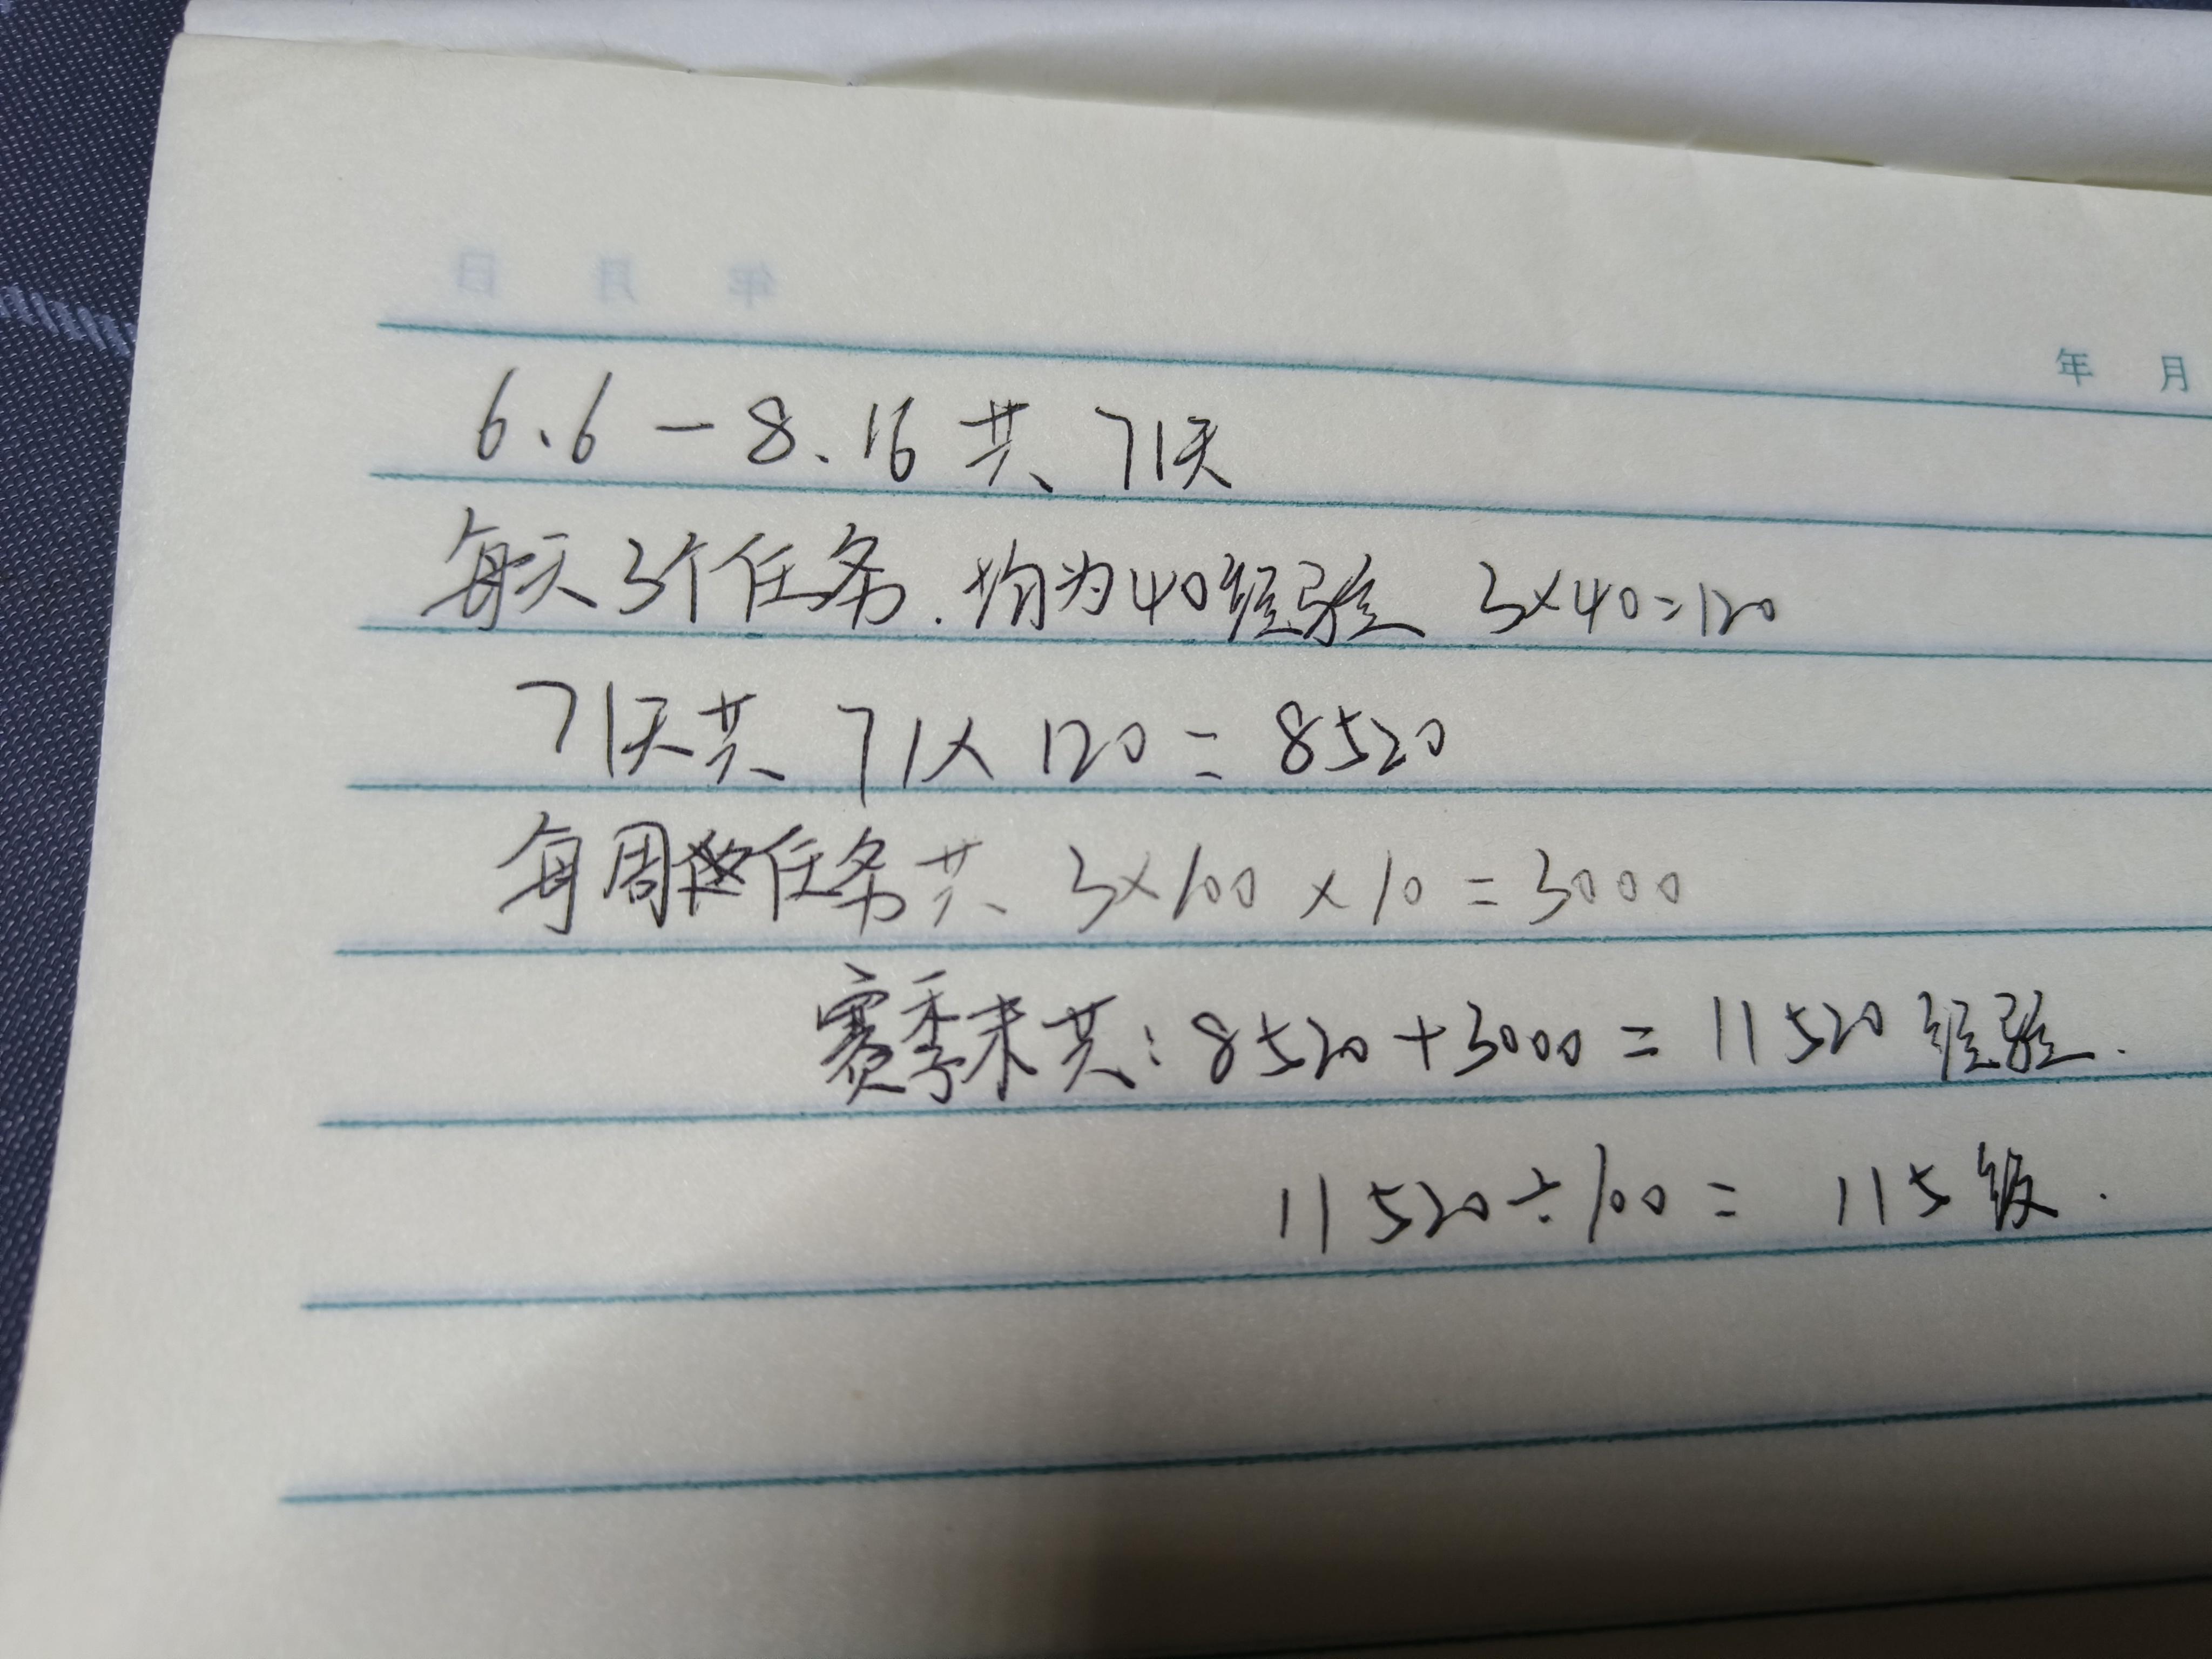 年 月 日
年 月
6.6-8.16 共 71天
每天3个任务.均为40经验 3×40=120
71天共 71×120=8520
每周任务共 3×100×10=3000
赛季末共:8520+3000=11520经验.
11520÷100= 115级.